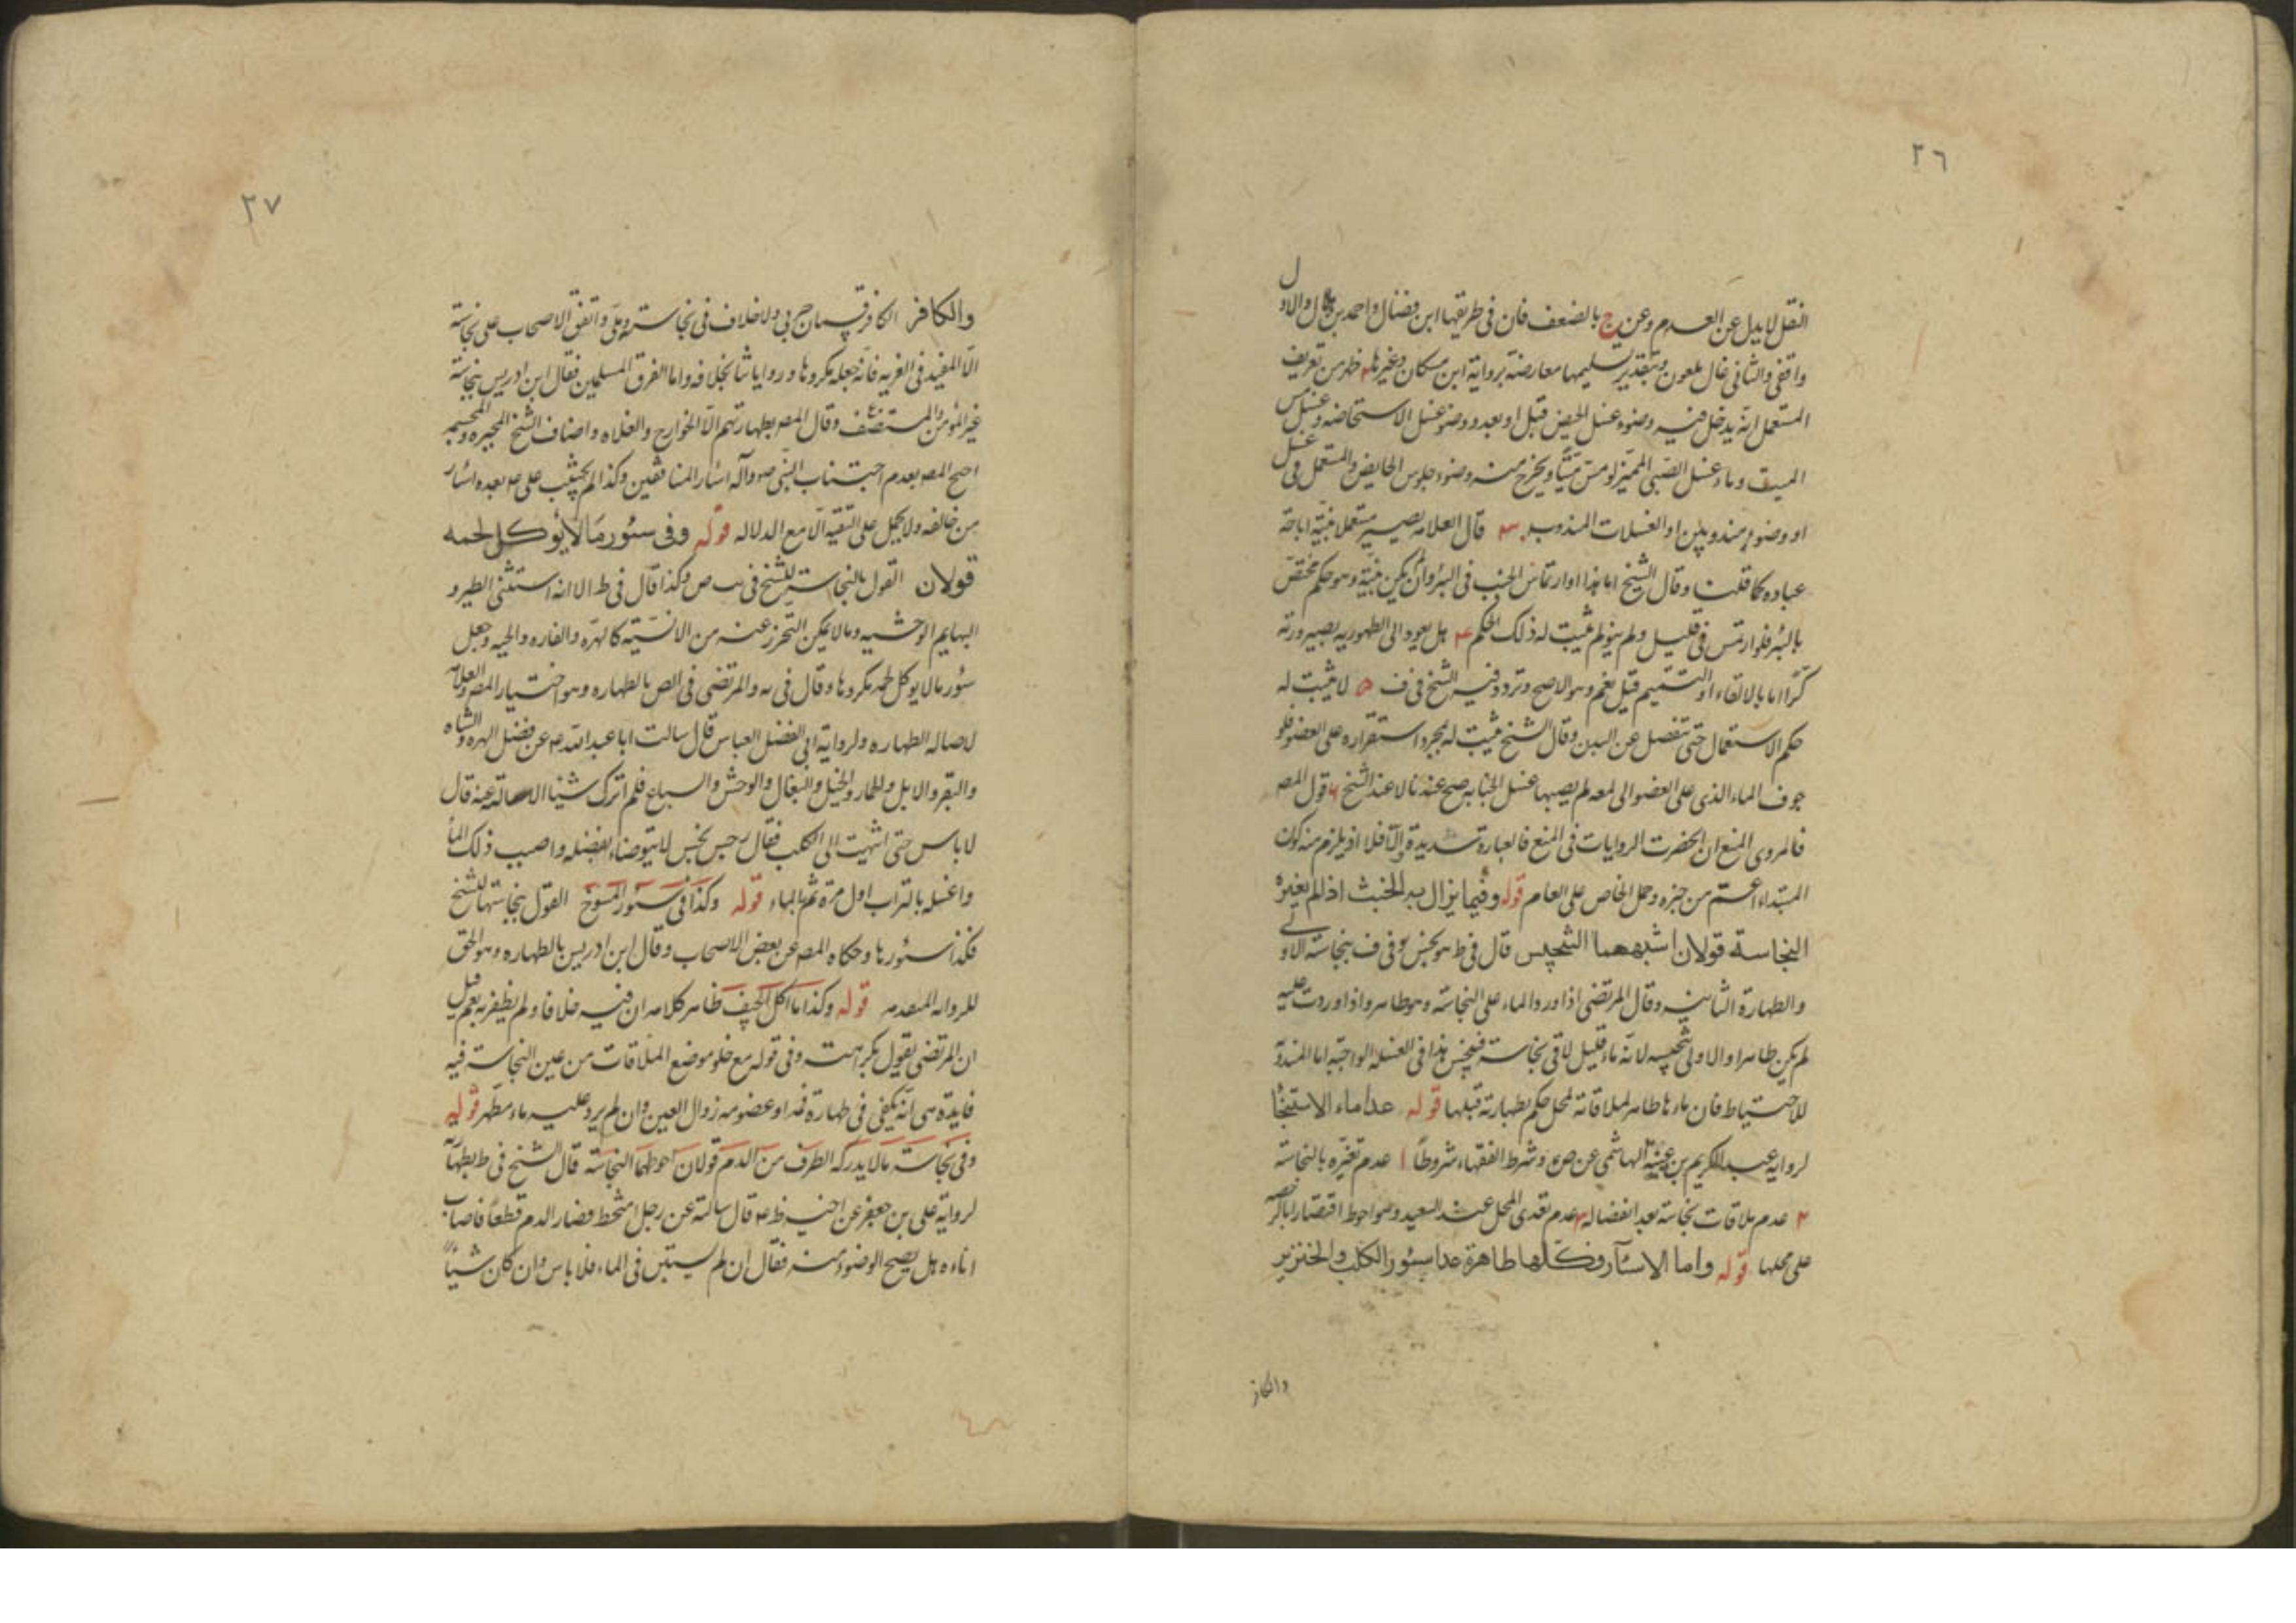 ٢٦
النقل لا يدل عن العدم وعن ج بالضعف فان فى طريقها ابن فضال واحمد بن هلال والاول
واقفى والثانى غال ملعون وبتقدير تسليمها معارضة برواية ابن مسكان وغيرها ٢ خرج من تعريف
المستعمل انه يدخل فيه وضوء غسل الحيض قبل او بعد ووضوء غسل الاستحاضه وغسل مس
الميت وماء غسل الصبى المميز لو مس ميتا ويخرج منه وضوء جلوس الحايض والمستعمل فى غسل
او وضوء مندوبين او الغسلات المندوبه ٣ قال العلامه يصير مستعملا بنية اباحة
عباده كما قلت وقال الشيخ اما بهذا او ارتماس الجنب فى البئر وان لم يكن بنية وهو حكم مختص
بالبئر فلو ارتمس فى قليل ولم ينو لم يثبت له ذلك الحكم ٤ هل يعود الى الطهورية بصيرورته
كرا اما بالالتقاء او التتميم قيل نعم وهو الاصح وتردد فيه الشيخ فى ف ٥ لا يثبت له
حكم الاستعمال حتى تنفصل عن البدن وقال الشيخ يثبت له بمجرد استقراره على العضو فلو
حوف الماء الذى على العضو الى لمعه لم يصبها غسل الجنابه صح عندنا لا عند الشيخ ٦ قول المص
فالمروى المنع ان انحضرت الروايات فى المنع فالعبارة سديدة والا فلا اذ يلزم منه كون
المبتداء اعم من خبره وحمل الخاص على العام قوله وفيما يزال به الخبث اذا لم يغيره
النجاسة قولان اشبههما التنجيس قال فى ط هو نجس وفى ف بنجاسة الاولى
والطهارة الثانيه وقال المرتضى اذا ورد الماء على النجاسة وهو طاهر واذا وردت عليه
لم يكن طاهرا والاولى تنجيسه لانه ماء قليل لاقى نجاسة فينجس هذا فى الغسله الواجبة اما المندوبة
للاحتياط فان ماءها طاهر لملاقاته لمحل حكم بطهارته قبلها قوله عدا ماء الاستنجا
لرواية عبد الكريم بن عتبة الهاشمى عن ص ع وشرط الفقهاء شروطا ١ عدم تغيره بالنجاسة
٢ عدم ملاقات نجاسة بعد انفصاله ٣ عدم تعدى المحل عند السعيد وهو احوط اقتصارا بالرخصه
على محلها قوله واما الاسئار فكلها طاهرة عدا سئور الكلب والخنزير
والكافر
٢٧
والكافر الكافر قسمان حربى ولا خلاف فى نجاسته وملى واتفق الاصحاب على نجاسة
الا المفيد فى الغريه فانه جعله مكروها وروايات بخلافه واما الفرق المسلمين فقال ابن ادريس بنجاسة
غير المؤمن والمستضعف وقال المص بطهارتهم الا الخوارج والغلاه واضاف الشيخ المجبره والمجسمه
احتج المص بعدم اجتناب النبى ص وآله اسئار المنافقين وكذا لم يجتنب على ع بعده اسئار
من خالفه ولا يحمل على التقيه الا مع الدلاله قوله وفى سئور ما لا يؤكل لحمه
قولان القول بالنجاسة للشيخ فى ب ص وكذا قال فى ط الا انه استثنى الطير و
البهايم الوحشيه وما لا يمكن التحرز عنه من الانسية كالهره والفاره والحيه وجعل
سئور ما لا يوكل لحمه مكروها وقال فى يه والمرتضى فى المص بالطهاره وهو اختيار المص والعلامة
لاصاله الطهاره ولرواية ابى الفضل العباس قال سالت ابا عبد الله ع عن فضل الهره والشاه
والبقر والابل والحمار والخيل والبغال والوحش والسباع فلم اترك شيئا الا سالته عنه قال
لا باس حتى انتهيت الى الكلب فقال رجس نجس لا يتوضاء بفضله واصبب ذلك الماء
واغسله بالتراب اول مرة ثم بالماء قوله وكذا فى سئور المسوخ القول بنجاستها للشيخ
فكذا سئورها وحكاه المص عن بعض الاصحاب وقال ابن ادريس بالطهاره وهو الحق
للروايه المتقدمه قوله وكذا ما اكل الجيف ظاهر كلامه ان فيه خلافا ولم نظفر به نعم قيل
ان المرتضى يقول بكراهته وفى قوله مع خلو موضع الملاقات من عين النجاسة فيه
فايدة هى انه يكفى فى طهارة فمه او عضو منه زوال العين وان لم يرد عليه ماء مطهر قوله
وفى نجاسة ما لا يدركه الطرف من الدم قولان احوطهما النجاسة قال الشيخ فى ط بطهارته
لرواية على بن جعفر عن اخيه ظ ع قال سالته عن رجل امتخط فصار الدم قطعا فاصاب
اناءه هل يصح الوضوء منه فقال ان لم يستبن فى الماء فلا باس وان كان شيئا